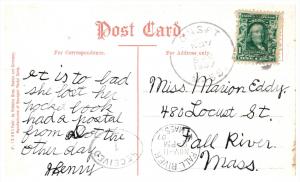 Post Card.
For Correspondence.
For Address only.
It is to bad
she lost her
horse. look
had a postal
from Dot the
other day.
Henry
Miss Marion Eddy.
480 Locust St.
Fall River.
Mass.
RECEIVED
FALL RIVER
MASS.